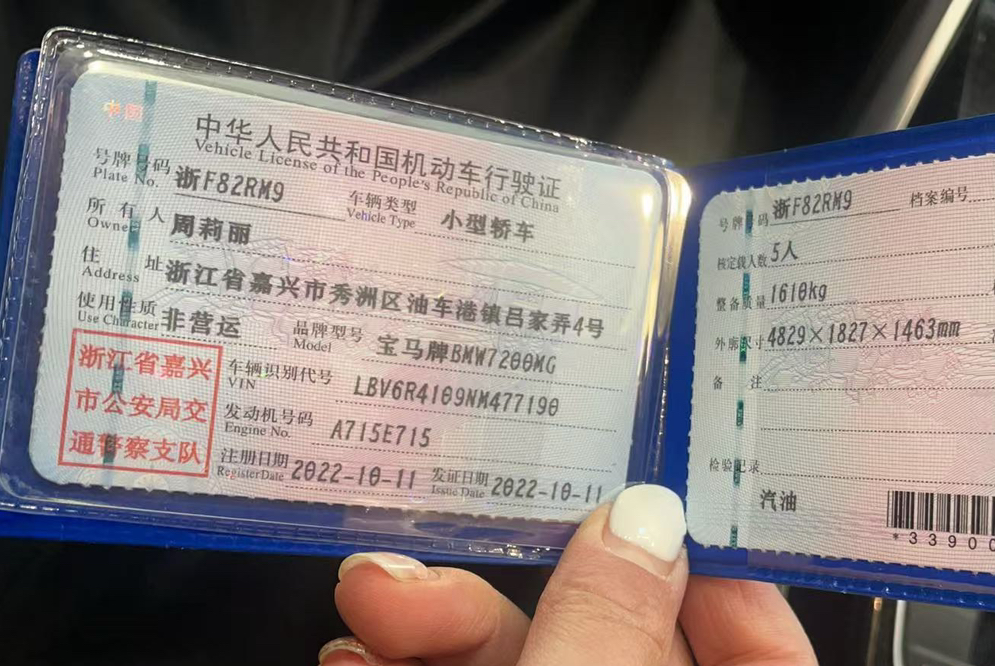 中国
中华人民共和国机动车行驶证
Vehicle License of the People's Republic of China
号牌号码 浙F82RM9 车辆类型 小型轿车
Plate No. Vehicle Type
所有人 周莉丽
Owner
住址 浙江省嘉兴市秀洲区油车港镇吕家弄4号
Address
使用性质 非营运 品牌型号 宝马牌BMW7200MG
Use Character Model
浙江省嘉兴
市公安局交
通警察支队
车辆识别代号 LBV6R4109NM477190
VIN
发动机号码 A715E715
Engine No.
注册日期 2022-10-11 发证日期 2022-10-11
Register Date Issue Date
号牌号码 浙F82RM9 档案编号
核定载人数 5人
整备质量 1610kg
外廓尺寸 4829×1827×1463mm
备注
检验记录
汽油
*33900